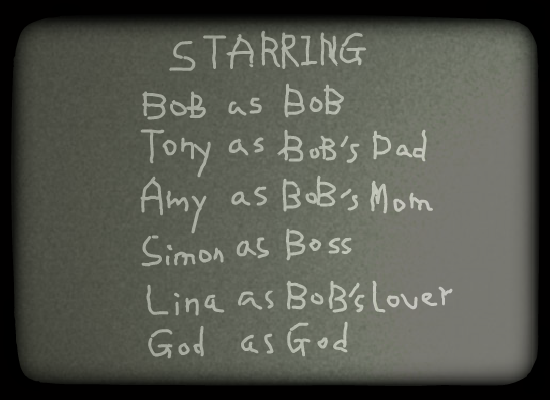 STARRING
BoB as BoB
Tony as BoB's Dad
Amy as BoB's Mom
Simon as Boss
Lina as BoB's Lover
God as God